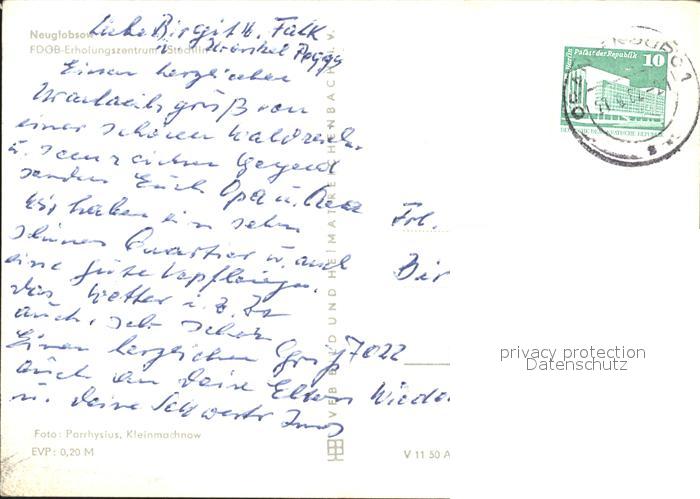 Neuglobsow
FDGB-Erholungszentrum "Stechlin
Liebe Birgit u. Falk
u. Peggy
Einen herzlichen
Urlaubsgruß von
einer schönen
u. Gegend
senden Euch Opa u. Oma
Wir haben ein sehr
schönes Quartier u. auch
eine gute Verpflegung.
das Wetter i. z. Zt
auch sehr schön
Einen herzlichen Gruß
auch an Deine Eltern
u. Deine Schwester
Frl.
Bir
7022
Foto: Parrhysius, Kleinmachnow
EVP: 0,20 M
V 11 50 A
VEB BILD UND HEIMAT REICHENBACH i. V.
Berlin Palast der Republik
10
DEUTSCHE DEMOKRATISCHE REPUBLIK
privacy protection
Datenschutz